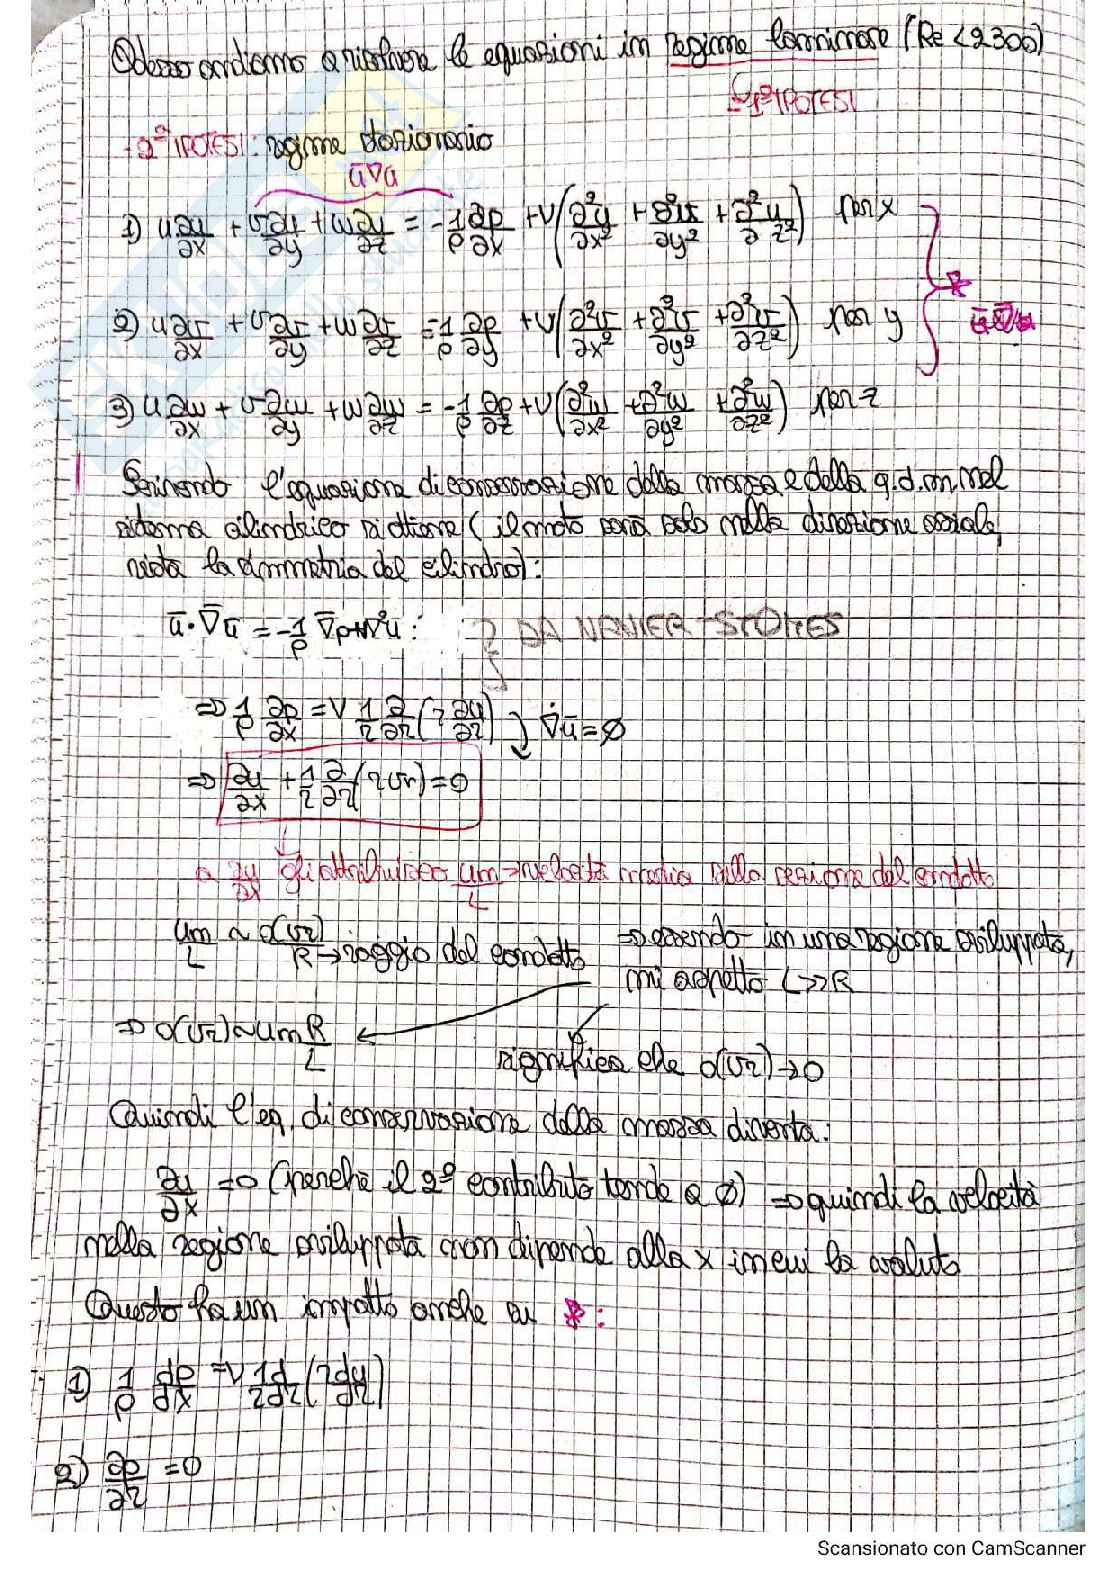 Adesso andiamo a risolvere le equazioni in regime laminare (Re<2300)
→ 1ª IPOTESI
- 2ª IPOTESI: regime stazionario
ū∇ū
1) u ∂u/∂x + v ∂u/∂y + w ∂u/∂z = -1/ρ ∂p/∂x + ν(∂²u/∂x² + ∂²u/∂y² + ∂²u/∂z²) per x
*
2) u ∂v/∂x + v ∂v/∂y + w ∂v/∂z = -1/ρ ∂p/∂y + ν(∂²v/∂x² + ∂²v/∂y² + ∂²v/∂z²) per y
3) u ∂w/∂x + v ∂w/∂y + w ∂w/∂z = -1/ρ ∂p/∂z + ν(∂²w/∂x² + ∂²w/∂y² + ∂²w/∂z²) per z
Scrivendo l'equazione di conservazione della massa e della q.d.m. nel
sistema cilindrico si ottiene (il moto sarà solo nella direzione assiale,
vista la simmetria del cilindro):
ū·∇̄ū = -1/ρ ∇̄p+ν∇²ū : DA NAVIER-STOKES
⇒ 1/ρ ∂p/∂x = ν 1/r ∂/∂r (r ∂u/∂r) ∇·ū = ∅
⇒ ∂u/∂x + 1/r ∂/∂r (r vr) = 0
a ∂u/∂x gli attribuisco um/L → velocità media sulla sezione del condotto
um/L ~ o(vr)/R → raggio del condotto ⇒ essendo in una regione sviluppata,
mi aspetto L>>R
⇒ o(vr) ~ um R/L
significa che o(vr)→0
Quindi l'eq. di conservazione della massa diventa:
∂u/∂x = 0 (perché il 2º contributo tende a ∅) ⇒ quindi la velocità
nella regione sviluppata non dipende dalla x in cui la valuto
Questo ha un impatto anche su *:
1) 1/ρ dp/dx = ν 1/r d/dr (r du/dr)
2) ∂p/∂r = 0
Scansionato con CamScanner